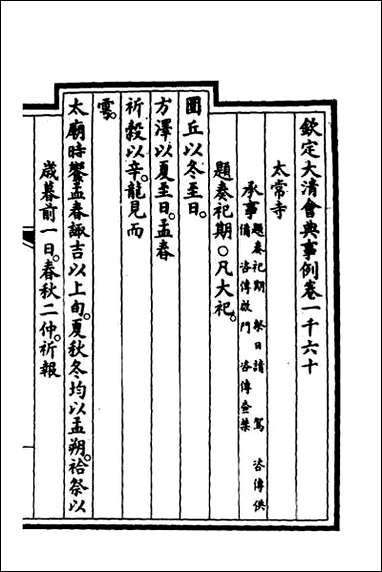 欽定大清會典事例卷一千六十
太常寺
承事題奏祀期 祭日請 駕 咨傳供
備 咨傳啟門 咨傳齋禁
題奏祀期○凡大祀。
圜丘以冬至日。
方澤以夏至日。孟春
祈穀以辛。龍見而
雩。
太廟時饗孟春諏吉以上旬。夏秋冬均以孟朔。祫祭以
歲暮前一日。春秋二仲。祈報